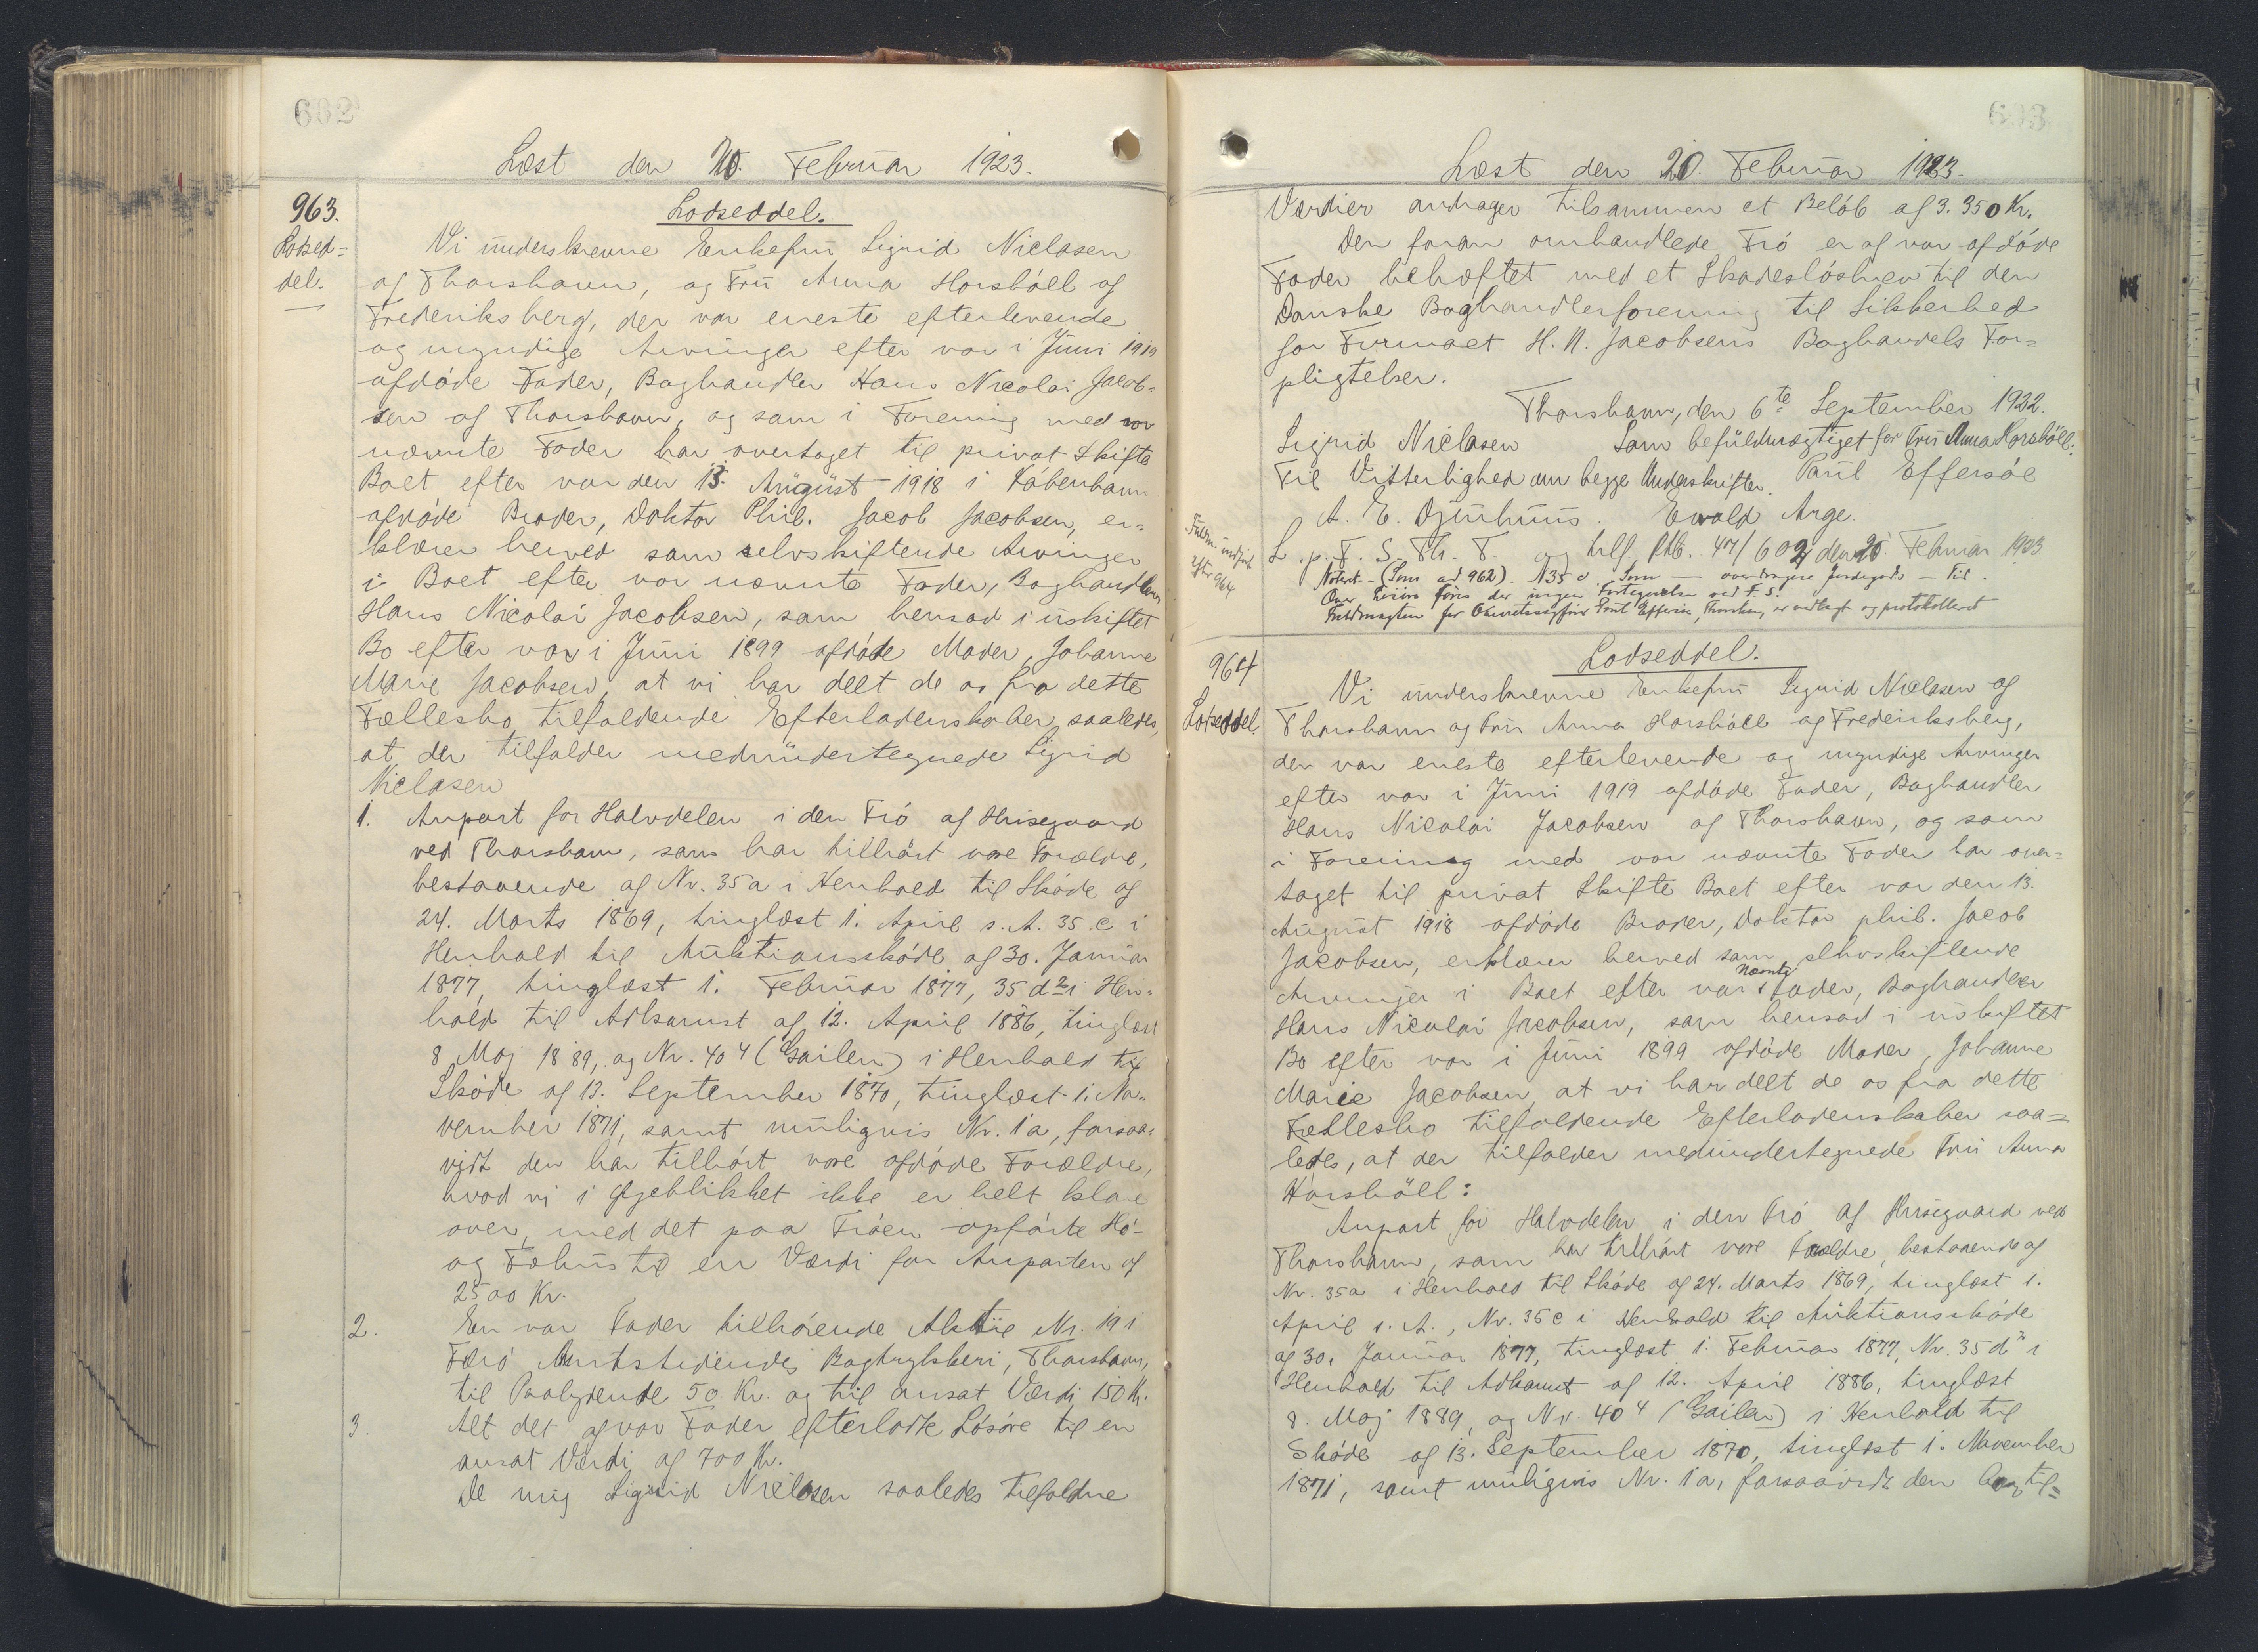 662
Læst den 20. Februar 1923.
963.
Lodsed=
del.
Lodseddel.
Vi underskrevne Enkefru Sigrid Niclasen
af Thorshavn, og Fru Anna Horsböll af
Frederiksberg, der var eneste efterlevende
og myndige Arvinger efter vor i Juni 1919
afdøde Fader, Boghandler Hans Nicolai Jacob-
sen af Thorshavn, og som i Forening med vor
nævnte Fader har overtaget til privat Skifte
Boet efter vor den 13. August 1918 i København
afdøde Broder, Doktor Phil. Jacob Jacobsen, er=
klærer herved som selvskiftende Arvinger
i Boet efter vor nævnte Fader, Boghandler
Hans Nicolai Jacobsen, som hensad i uskiftet
Bo efter vor i Juni 1899 afdøde Moder, Johanne
Marie Jacobsen, at vi har delt de os fra dette
Fællesbo tilfaldende Efterladenskaber saaledes,
at der tilfalder medundertegnede Sigrid
Niclasen
1. Anpart for Halvdelen i den Trø af Husegaard
ved Thorshavn, som har tilhørt vore Forældre,
bestaaende af Nr. 35a i Henhold til Skøde af
24. Marts 1869, tinglæst 1. April s. A. 35 c i
Henhold til Auktionsskøde af 30. Januar
1877, tinglæst 1. Februar 1877, 35 d i Hen-
hold til Adkomst af 12. April 1886, tinglæst
8 Maj 1889, og Nr. 40 4 (Gailen) i Henhold til
Skøde af 13. September 1870, tinglæst 1. No-
vember 1871, samt muligvis Nr. 1a, forsaa-
vidt den har tilhørt vore afdøde Forældre,
hvad vi i Øjeblikket ikke er helt klare
over, med det paa Trøen opførte Hø-
og Fæhus til en Værdi for Anparten af
2500 Kr.
2. En vor Fader tilhørende Aktie Nr. 19 i
Færø Amtstidendes Bogtrykkeri, Thorshavn,
til Paalydende 50 Kr. og til ansat Værdi 150 Kr.
3. Alt det af vor Fader efterladte Løsøre til en
ansat Værdi af 700 Kr.
De mig Sigrid Niclasen saaledes tilfaldne
663
Læst den 20. Februar 1923.
Værdier andrager tilsammen et Beløb af 3.350 Kr.
Den foran omhandlede Trø er af vor afdøde
Fader behæftet med et Skadesløsbrev til den
Danske Boghandlerforening til Sikkerhed
for Firmaet H. N. Jacobsens Boghandels For=
pligtelser.
Thorshavn, den 6te September 1922.
Sigrid Niclasen Som befuldmægtiget for Fru Anna Horsböll.
Til Vitterlighed om begge Underskrifter. Paul Effersøe
A. C. Djurhuus. Ewald Arge.
Fuldm. indført
efter 964
L. p. F. S. Th. T. og tilf. Ptb. 47/602 den 20. Februar 1923.
Noteret - (Som ad 962). N 35 d. Som — overdragere Jordegods — Til.
Over føres der ingen Fortegnelse ved F. S.
Fuldmagten for Overretssagfører Poul Effersøe, Thorshavn, er vedlagt og protokolleret
964
Lodseddel
Lodseddel.
Vi underskrevne Enkefru Sigrid Niclasen af
Thorshavn og Fru Anna Horsböll af Frederiksberg,
der var eneste efterlevende og myndige Arvinger
efter vor i Juni 1919 afdøde Fader, Boghandler
Hans Nicolai Jacobsen af Thorshavn, og som
i Forening med vor nævnte Fader har over=
taget til privat Skifte Boet efter vor den 13.
August 1918 afdøde Broder, Doktor phil. Jacob
Jacobsen, erklærer herved som selvskiftende
Arvinger i Boet efter vor nævnte Fader, Boghandler
Hans Nicolai Jacobsen, som hensad i uskiftet
Bo efter vor i Juni 1899 afdøde Moder, Johanne
Marie Jacobsen, at vi har delt de os fra dette
Fællesbo tilfaldende Efterladenskaber saa=
ledes, at der tilfalder medundertegnede Fru Anna
Horsböll:
Anpart for Halvdelen i den Trø af Husegaard ved
Thorshavn, som har tilhørt vore Forældre, bestaaende af
Nr. 35a i Henhold til Skøde af 24. Marts 1869, tinglæst 1.
April s. A., Nr. 35c i Henhold til Auktionsskøde
af 30. Januar 1877, tinglæst 1. Februar 1877, Nr. 35 d" i
Henhold til Adkomst af 12. April 1886, tinglæst
8. Maj 1889, og Nr. 40 4 (Gailen) i Henhold til
Skøde af 13. September 1870, tinglæst 1. November
1871, samt muligvis Nr. 1a, forsaavidt den har til=